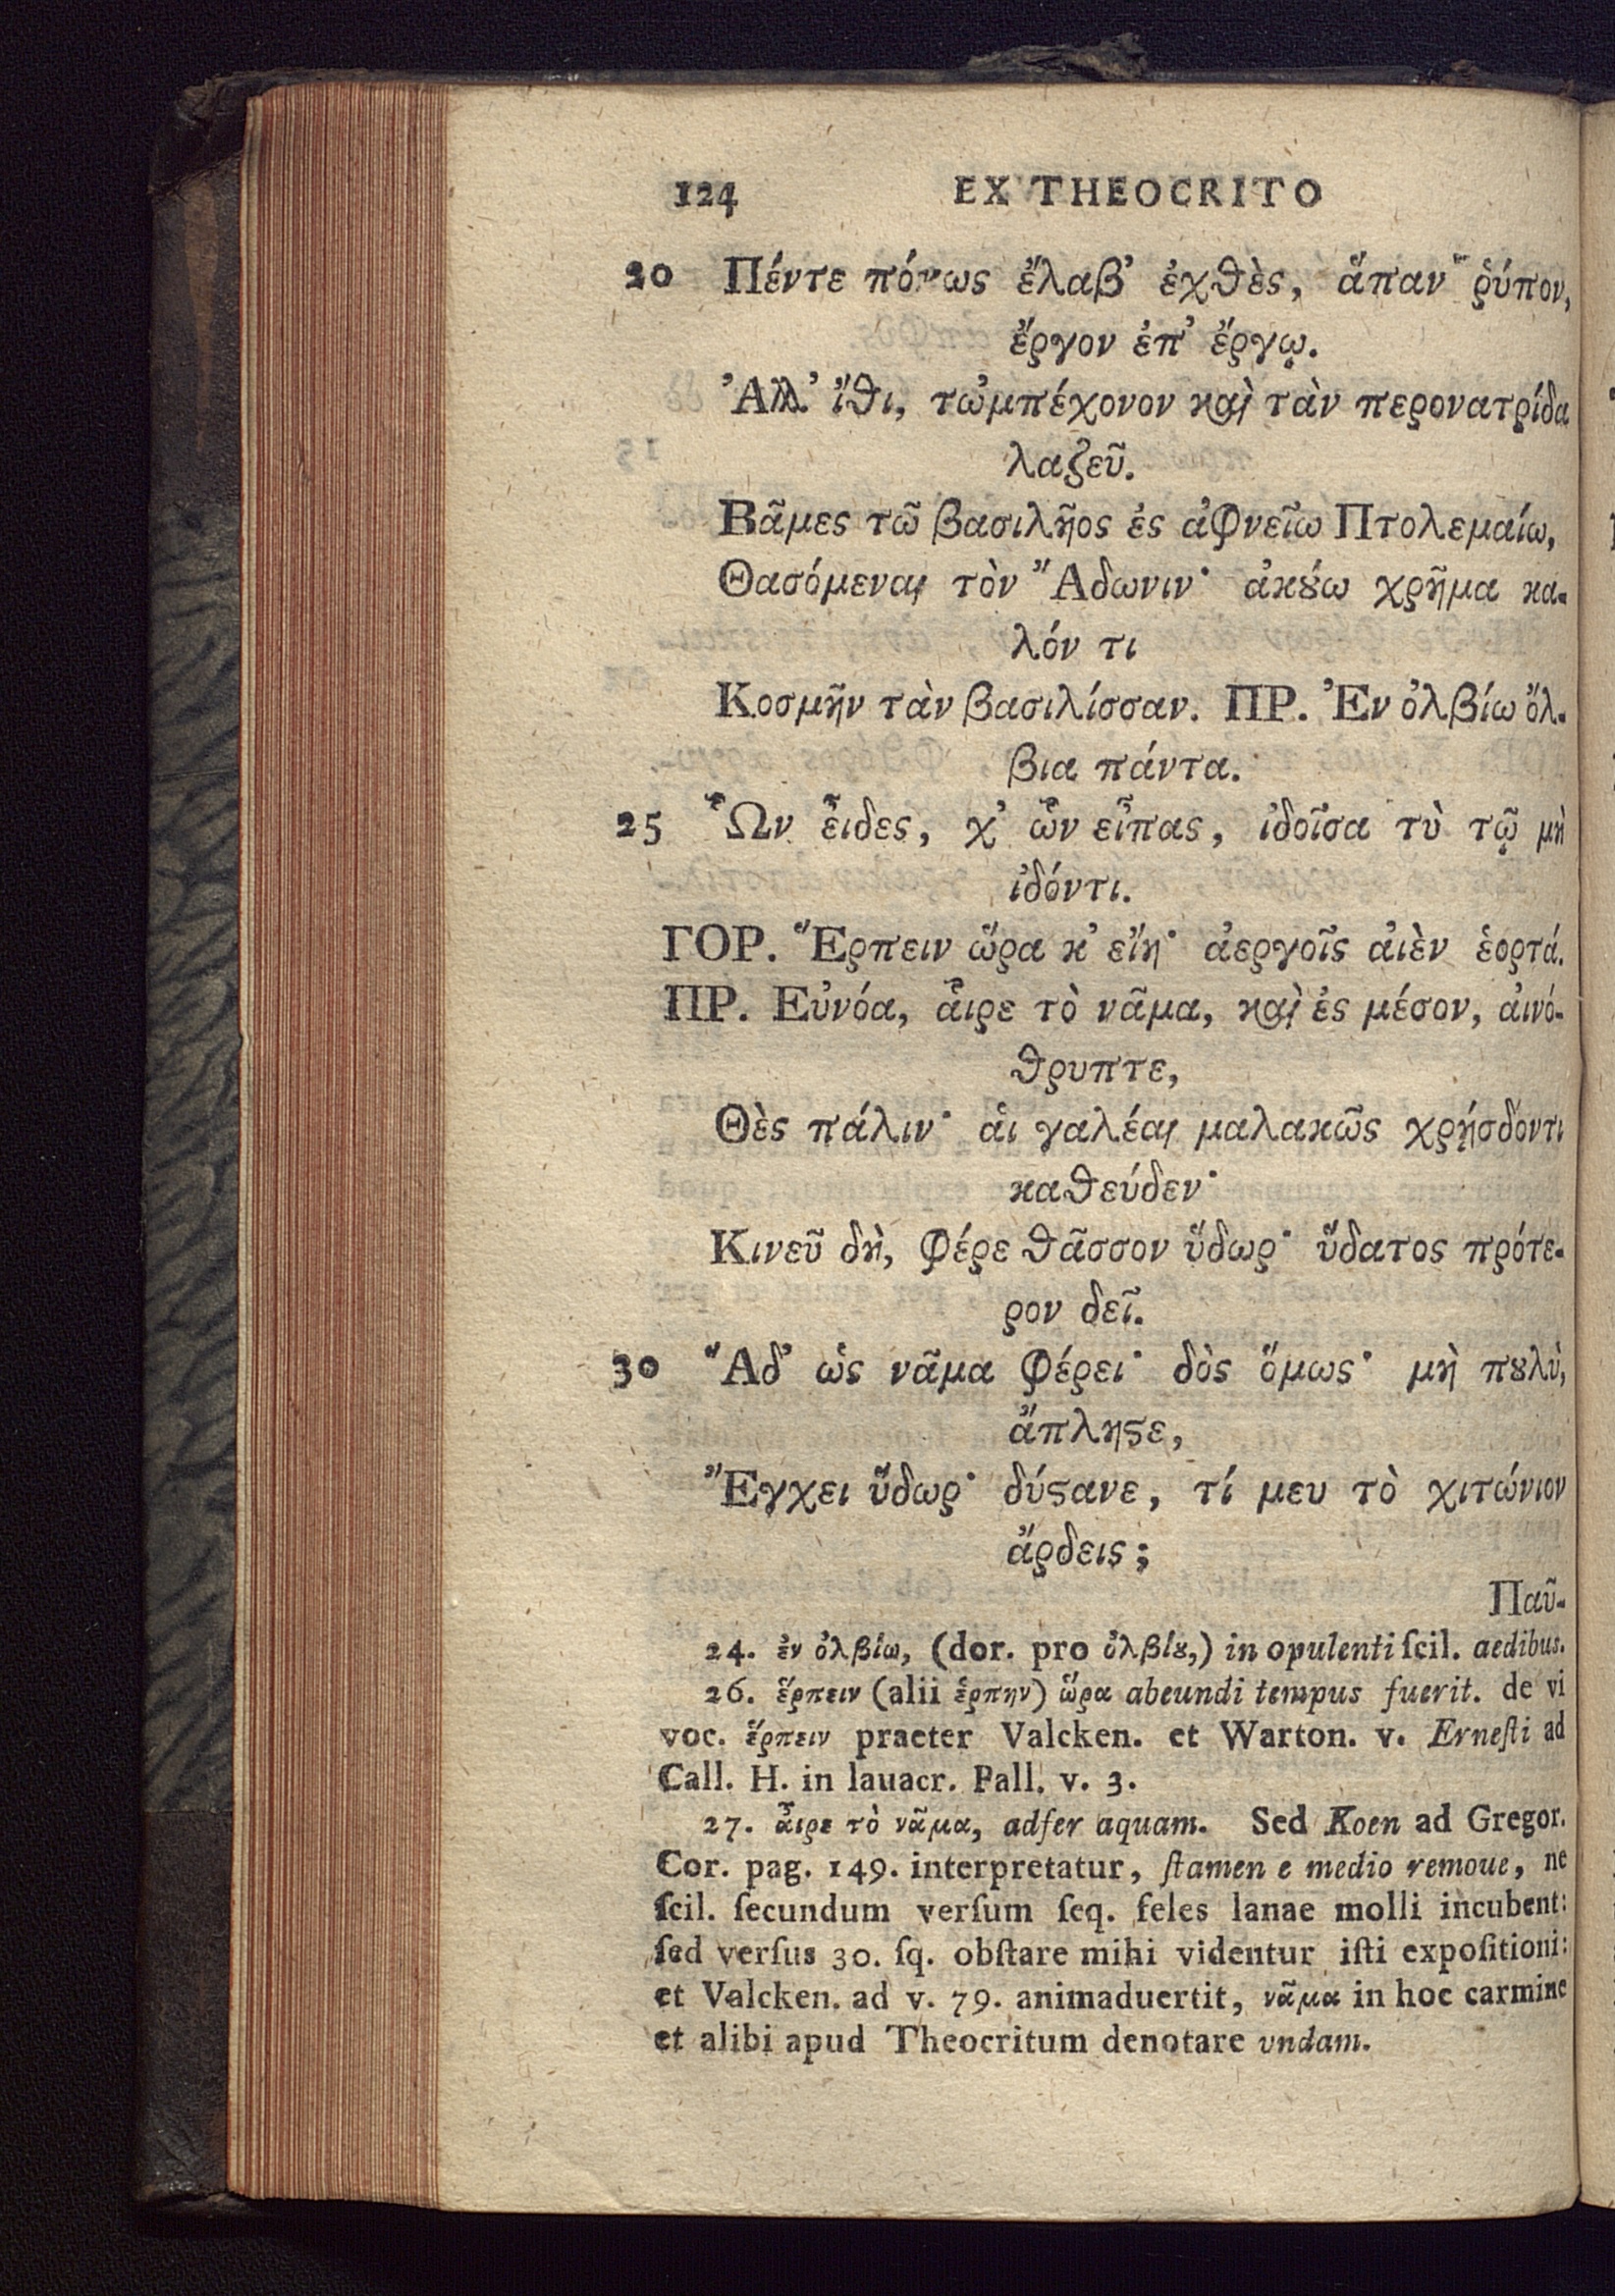 124 EX THEOCRITO
20 Πέντε πόκως ἔλαβ' ἐχθὲς, ἅπαν ῥύπον,
ἔργον ἐπ' ἔργῳ.
Ἀλλ' ἴθι, τὠμπέχονον καὶ τὰν περονατρίδα
λαζεῦ.
Βᾶμες τῶ βασιλῆος ἐς ἀφνειῶ Πτολεμαίω,
Θασόμεναι τὸν Ἄδωνιν· ἀκούω χρῆμα κα-
λόν τι
Κοσμῆν τὰν βασιλίσσαν. ΠΡ. Ἐν ὀλβίω ὄλ-
βια πάντα.
25 Ὧν εἶδες, χ' ὧν εἶπας, ἰδοῖσα τὺ τῷ μὴ
ἰδόντι.
ΓΟΡ. Ἕρπειν ὥρα κ' εἴη· ἀεργοῖς αἰὲν ἑορτά.
ΠΡ. Εὐνόα, αἶρε τὸ νᾶμα, καὶ ἐς μέσον, αἰνό-
θρυπτε,
Θὲς πάλιν· αἱ γαλέαι μαλακῶς χρήσδοντι
καθεύδεν·
Κινεῦ δὴ, φέρε θᾶσσον ὕδωρ· ὕδατος πρότε-
ρον δεῖ.
30 Ἅδ' ὡς νᾶμα φέρει· δὸς ὅμως· μὴ πουλὺ,
ἄπληστε,
Ἔγχει ὕδωρ· δύστανε, τί μευ τὸ χιτώνιον
ἄρδεις;
Παῦ-
24. ἐν ὀλβίω, (dor. pro ὀλβίου,) in opulenti ſcil. aedibus.
26. ἕρπειν (alii ἑρπην) ὥρα abeundi tempus fuerit. de vi
voc. ἕρπειν praeter Valcken. et Warton. v. Erneſti ad
Call. H. in lauacr. Pall. v. 3.
27. αἶρε τὸ νᾶμα, adfer aquam. Sed Koen ad Gregor.
Cor. pag. 149. interpretatur, ſtamen e medio remoue, ne
ſcil. ſecundum verſum ſeq. feles lanae molli incubent:
ſed verſus 30. ſq. obſtare mihi videntur iſti expoſitioni:
et Valcken. ad v. 79. animaduertit, νᾶμα in hoc carmine
et alibi apud Theocritum denotare vndam.